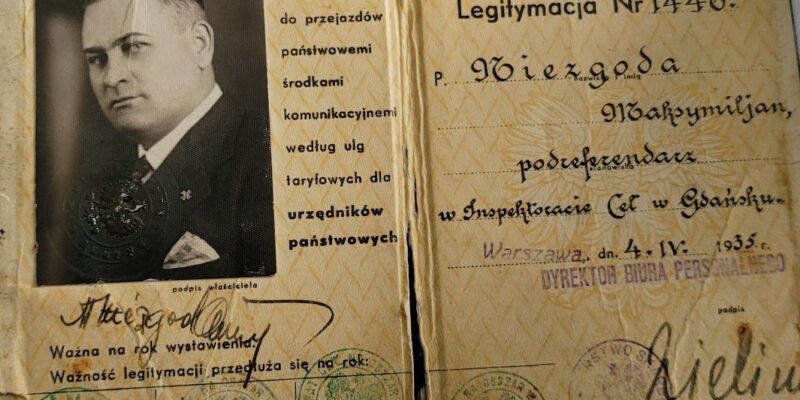 do przejazdów
państwowemi
środkami
komunikacyjnemi
według ulg
taryfowych dla
urzędników
państwowych
podpis właściciela
Ważna na rok wystawienia.
Ważność legitymacji przedłuża się na rok:
Legitymacja Nr 1446.
P. Niezgoda
nazwisko imię
Maksymiljan,
podreferendarz
stanowisko
w Inspektoracie Ceł w Gdańsku.
Warszawa, dn. 4.IV.1935 r.
DYREKTOR BIURA PERSONALNEGO
podpis